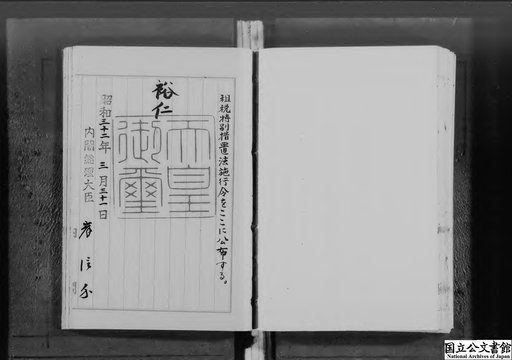 租税特別措置法施行令をここに公布する。
裕仁
天皇
御璽
昭和三十二年三月三十一日
内閣総理大臣 岸信介
国立公文書館
National Archives of Japan